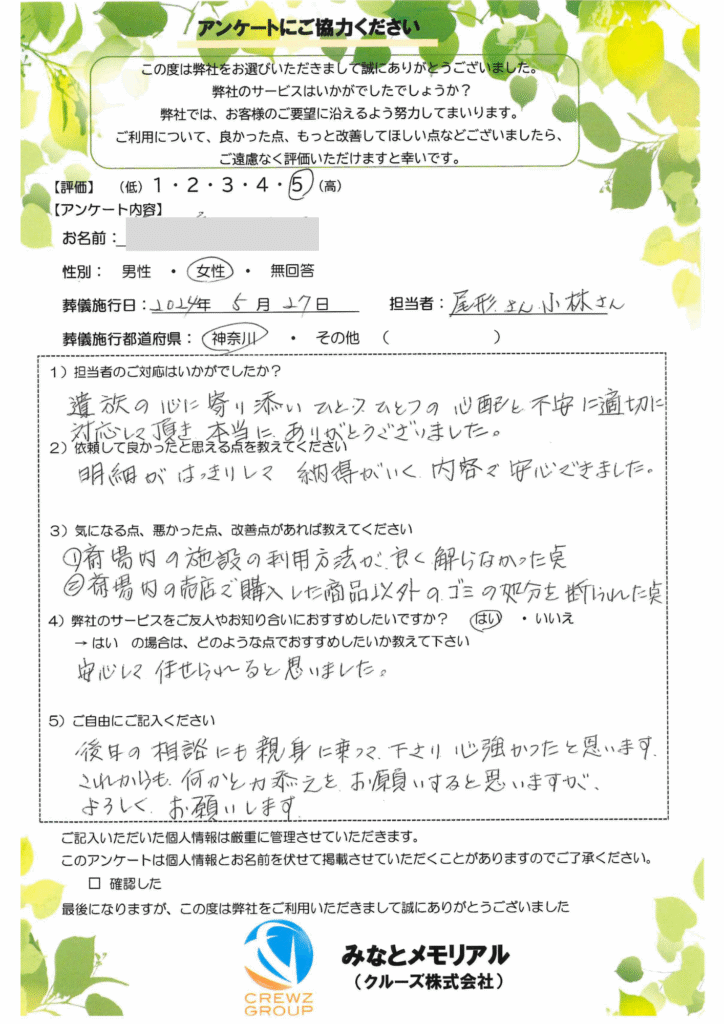 アンケートにご協力ください
この度は弊社をお選びいただきまして誠にありがとうございました。
弊社のサービスはいかがでしたでしょうか？
弊社では、お客様のご要望に沿えるよう努力してまいります。
ご利用について、良かった点、もっと改善してほしい点などございましたら、
ご遠慮なく評価いただけますと幸いです。
【評価】 （低）１・２・３・４・５（高）
【アンケート内容】
お名前：
性別： 男性 ・ 女性 ・ 無回答
葬儀施行日：2024年 5月27日 担当者：尾形さん 小林さん
葬儀施行都道府県： 神奈川 ・ その他 （ ）
１）担当者のご対応はいかがでしたか？
遺族の心に寄り添い ひとつひとつの心配と不安に適切に
対応して頂き 本当に ありがとうございました。
２）依頼して良かったと思える点を教えてください
明細が はっきりして 納得がいく 内容で 安心できました。
３）気になる点、悪かった点、改善点があれば教えてください
①斎場内の施設の利用方法が良く解らなかった点
②斎場内の売店で購入した商品以外のゴミの処分を断られた点
４）弊社のサービスをご友人やお知り合いにおすすめしたいですか？ はい ・いいえ
→ はい の場合は、どのような点でおすすめしたいか教えて下さい
安心して 任せられると思いました。
５）ご自由にご記入ください
後日の相談にも親身に乗って下さり 心強かったと思います
これからも 何かと力添えを お願いすると思いますが、
よろしく お願いします
ご記入いただいた個人情報は厳重に管理させていただきます。
このアンケートは個人情報とお名前を伏せて掲載させていただくことがありますのでご了承ください。
☐ 確認した
最後になりますが、この度は弊社をご利用いただきまして誠にありがとうございました
みなとメモリアル
（クルーズ株式会社）
CREWZ
GROUP